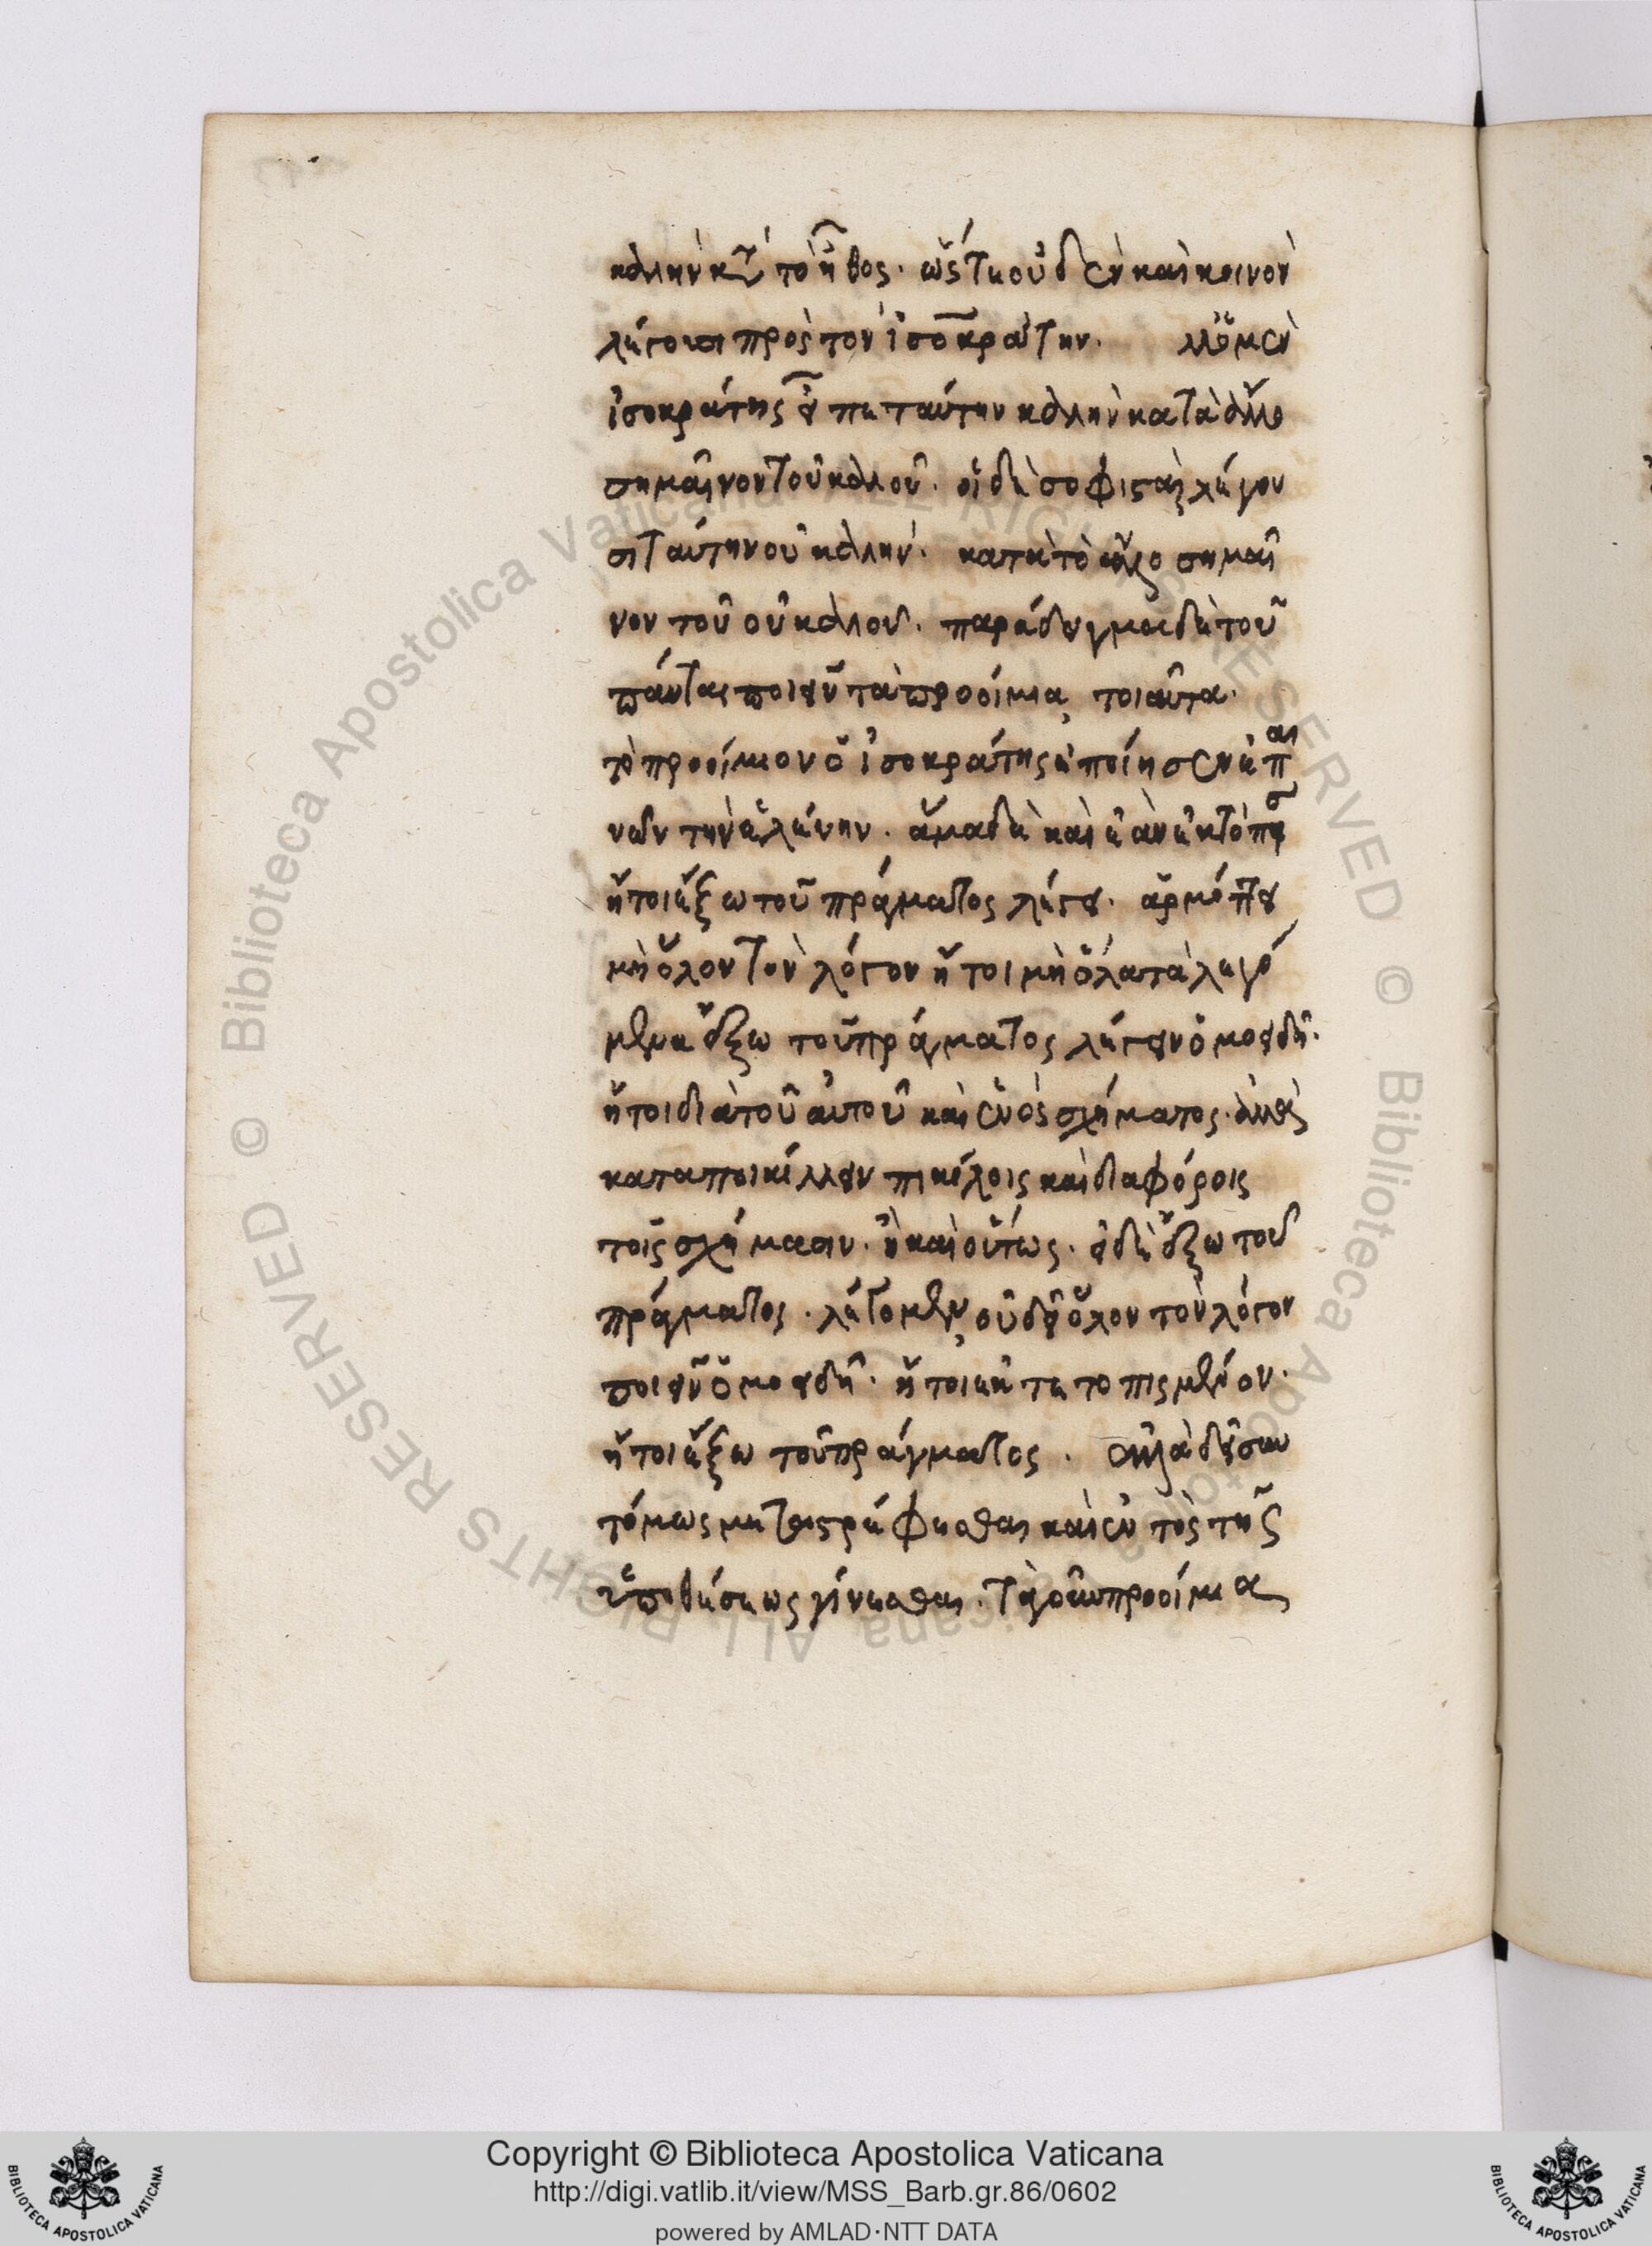 καλὴν κατὰ τὸ ἦθος. ὥστε οὐδὲν καὶ κοινὸν
λέγουσι πρὸς τὸν ἰσοκράτην. ὁ μὲν
ἰσοκράτης εἶπε ταύτην καλὴν κατὰ ἄλλο
σημαῖνον τοῦ καλοῦ. οἱ δὲ σοφισταὶ λέγου
σι ταύτην οὐ καλήν. κατὰ τὸ ἄλλο σημαῖ
νον τοῦ οὐ καλοῦ. παράδειγμα δὲ τοῦ
πάντας ποιεῖν τὰ προοίμια τοιαῦτα.
τὸ προοίμιον ὃ ἰσοκράτης ἐποίησεν ἐπαι
νῶν τὴν ἑλένην. ἅμα δὲ καὶ ἐὰν ἐκτόπως
ἤτοι ἔξω τοῦ πράγματος λέγει. ἁρμόττει
μὴ ὅλον τὸν λόγον ἤτοι μὴ ὅλα τὰ λεγό
μενα ἔξω τοῦ πράγματος λέγειν ὁμοειδῆ.
ἤτοι διὰ τοῦ αὐτοῦ καὶ ἑνὸς σχήματος. ἀλλὰ
καταποικίλλειν ποικίλοις καὶ διαφόροις
τοῖς σχήμασιν. ἢ καὶ οὕτως. εἰ δὲ ἔξω τοῦ
πράγματος. λέγομεν, οὐ δεῖ ὅλον τὸν λόγον
ποιεῖν ὁμοειδῆ. ἤτοι ἐκτετοπισμένον.
ἤτοι ἔξω τοῦ πράγματος. ἀλλὰ δεῖ συν
τόμως μεταστρέφεσθαι καὶ ἐντὸς τῆς
ὑποθέσεως γίνεσθαι. τὰ οὖν προοίμια